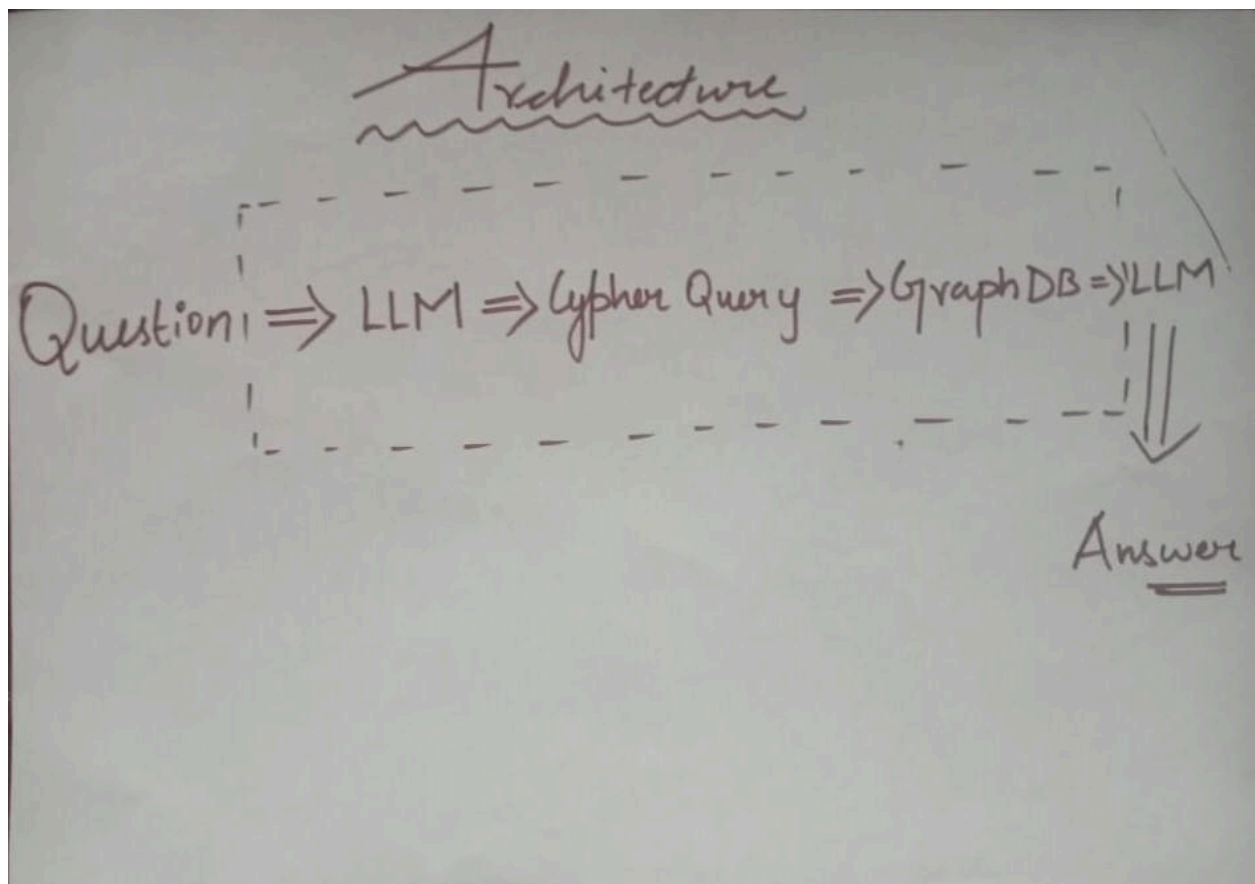 Architecture
Question => LLM => Cypher Query => Graph DB => LLM
Answer